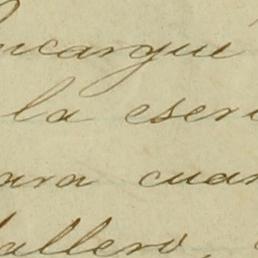 encargué
la escri
para cuan
ballero,